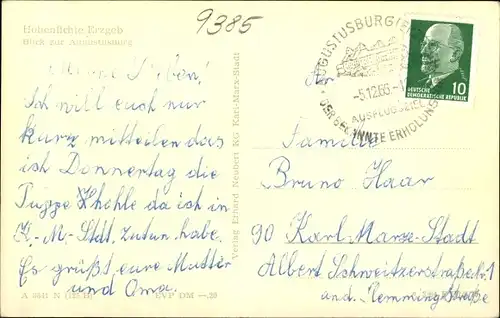 9385
Hohenfichte Erzgeb
Blick zur Augustusburg
Meine Lieben!
Ich will euch nur
kurz mitteilen das
ich Donnertag die
Puppe hohle da ich in
K.-M.-Stdt. zutun habe.
Es grüßt eure Mutter
und Oma.
A 6541 N EVP DM —,20
Verlag Erhard Neubert KG Karl-Marx-Stadt
AUGUSTUSBURG
-5.12.66-
AUSFLUGSZIEL
ERHOLUNG
10
DEUTSCHE
DEMOKRATISCHE REPUBLIK
An
Familie
Bruno Haar
90 Karl-Marx-Stadt
Albert Schweitzerstraße
and.